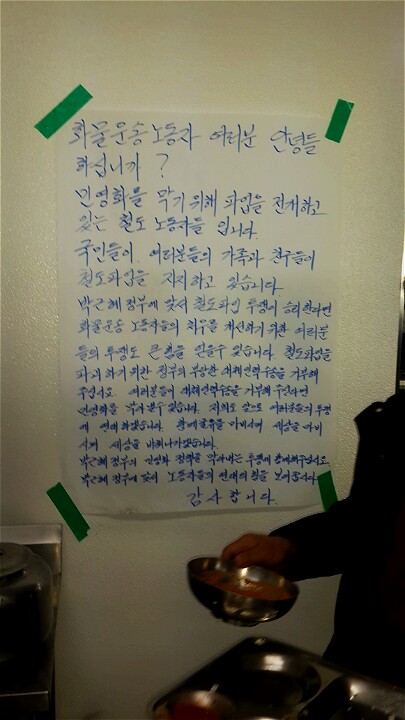 화물운송 노동자 여러분 안녕들
하십니까 ?
민영화를 막기 위해 파업을 전개하고
있는 철도 노동자들 입니다.
국민들이, 여러분들의 가족과 친구들이
철도파업을 지지하고 있습니다
박근혜 정부에 맞서 철도파업 투쟁이 승리한다면
화물운송 노동자들의 처우를 개선하기 위한 여러분
들의 투쟁도 큰 힘을 얻을수 있습니다. 철도파업을
파괴하기 위한 정부의 부당한 대체인력수송을 거부해
주십시요. 여러분들이 대체인력수송을 거부해 주신다면
민영화를 막아낼수 있습니다. 저희도 앞으로 여러분들의 투쟁
에 연대 하겠습니다. 함께 물류를 마비시켜 세상을 마비
시켜 세상을 바꿔나가겠습니다.
박근혜 정부의 민영화 정책을 막아내는 투쟁에 함께해주십시요.
박근혜 정부에 맞서 노동자들의 연대의 힘을 보여줍시다
감사합니다.